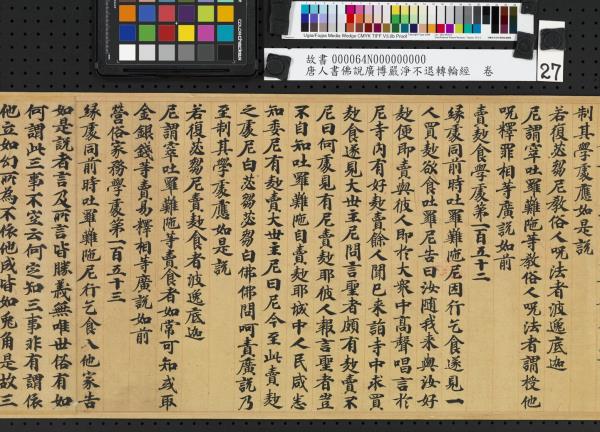 故書 000064N000000000
唐人書佛說廣博嚴淨不退轉輪經 卷
27
制其學處應如是說
若復苾芻尼教俗人呪法者波逸底迦
尼謂窣吐羅難陁等教俗人呪法者謂授他
呪釋罪相等廣說如前
賣麨食學處第一百五十二
緣處同前時吐羅難陁尼因行乞食遂見一
人買麨欲食吐羅尼告曰汝隨我來與汝好
麨便即賣與彼人即於大衆中高聲唱言於
尼寺內有好麨賣餘人聞已來詣寺中求買
麨食遂見大世主尼問言聖者頗有麨賣不
尼曰何處見有尼賣麨耶彼人報言聖者豈
不自知吐羅難陁自賣麨耶城中人民咸悉
知委尼有麨賣大世主尼曰尼今至此賣麨
之處尼白苾芻苾芻白佛佛問呵責廣說乃
至制其學處應如是說
若復苾芻尼賣麨食者波逸底迦
尼謂窣吐羅難陁等賣食者如常可知或取
金銀錢等賣易釋相等廣說如前
營俗家務學處第一百五十三
緣處同前時吐羅難陁尼行乞食入他家告
如是說者言及所言皆勝義無唯世俗有如
何謂此三事不空云何定知三事非有謂依
他立如幻所為不依他成皆如兎角是故三